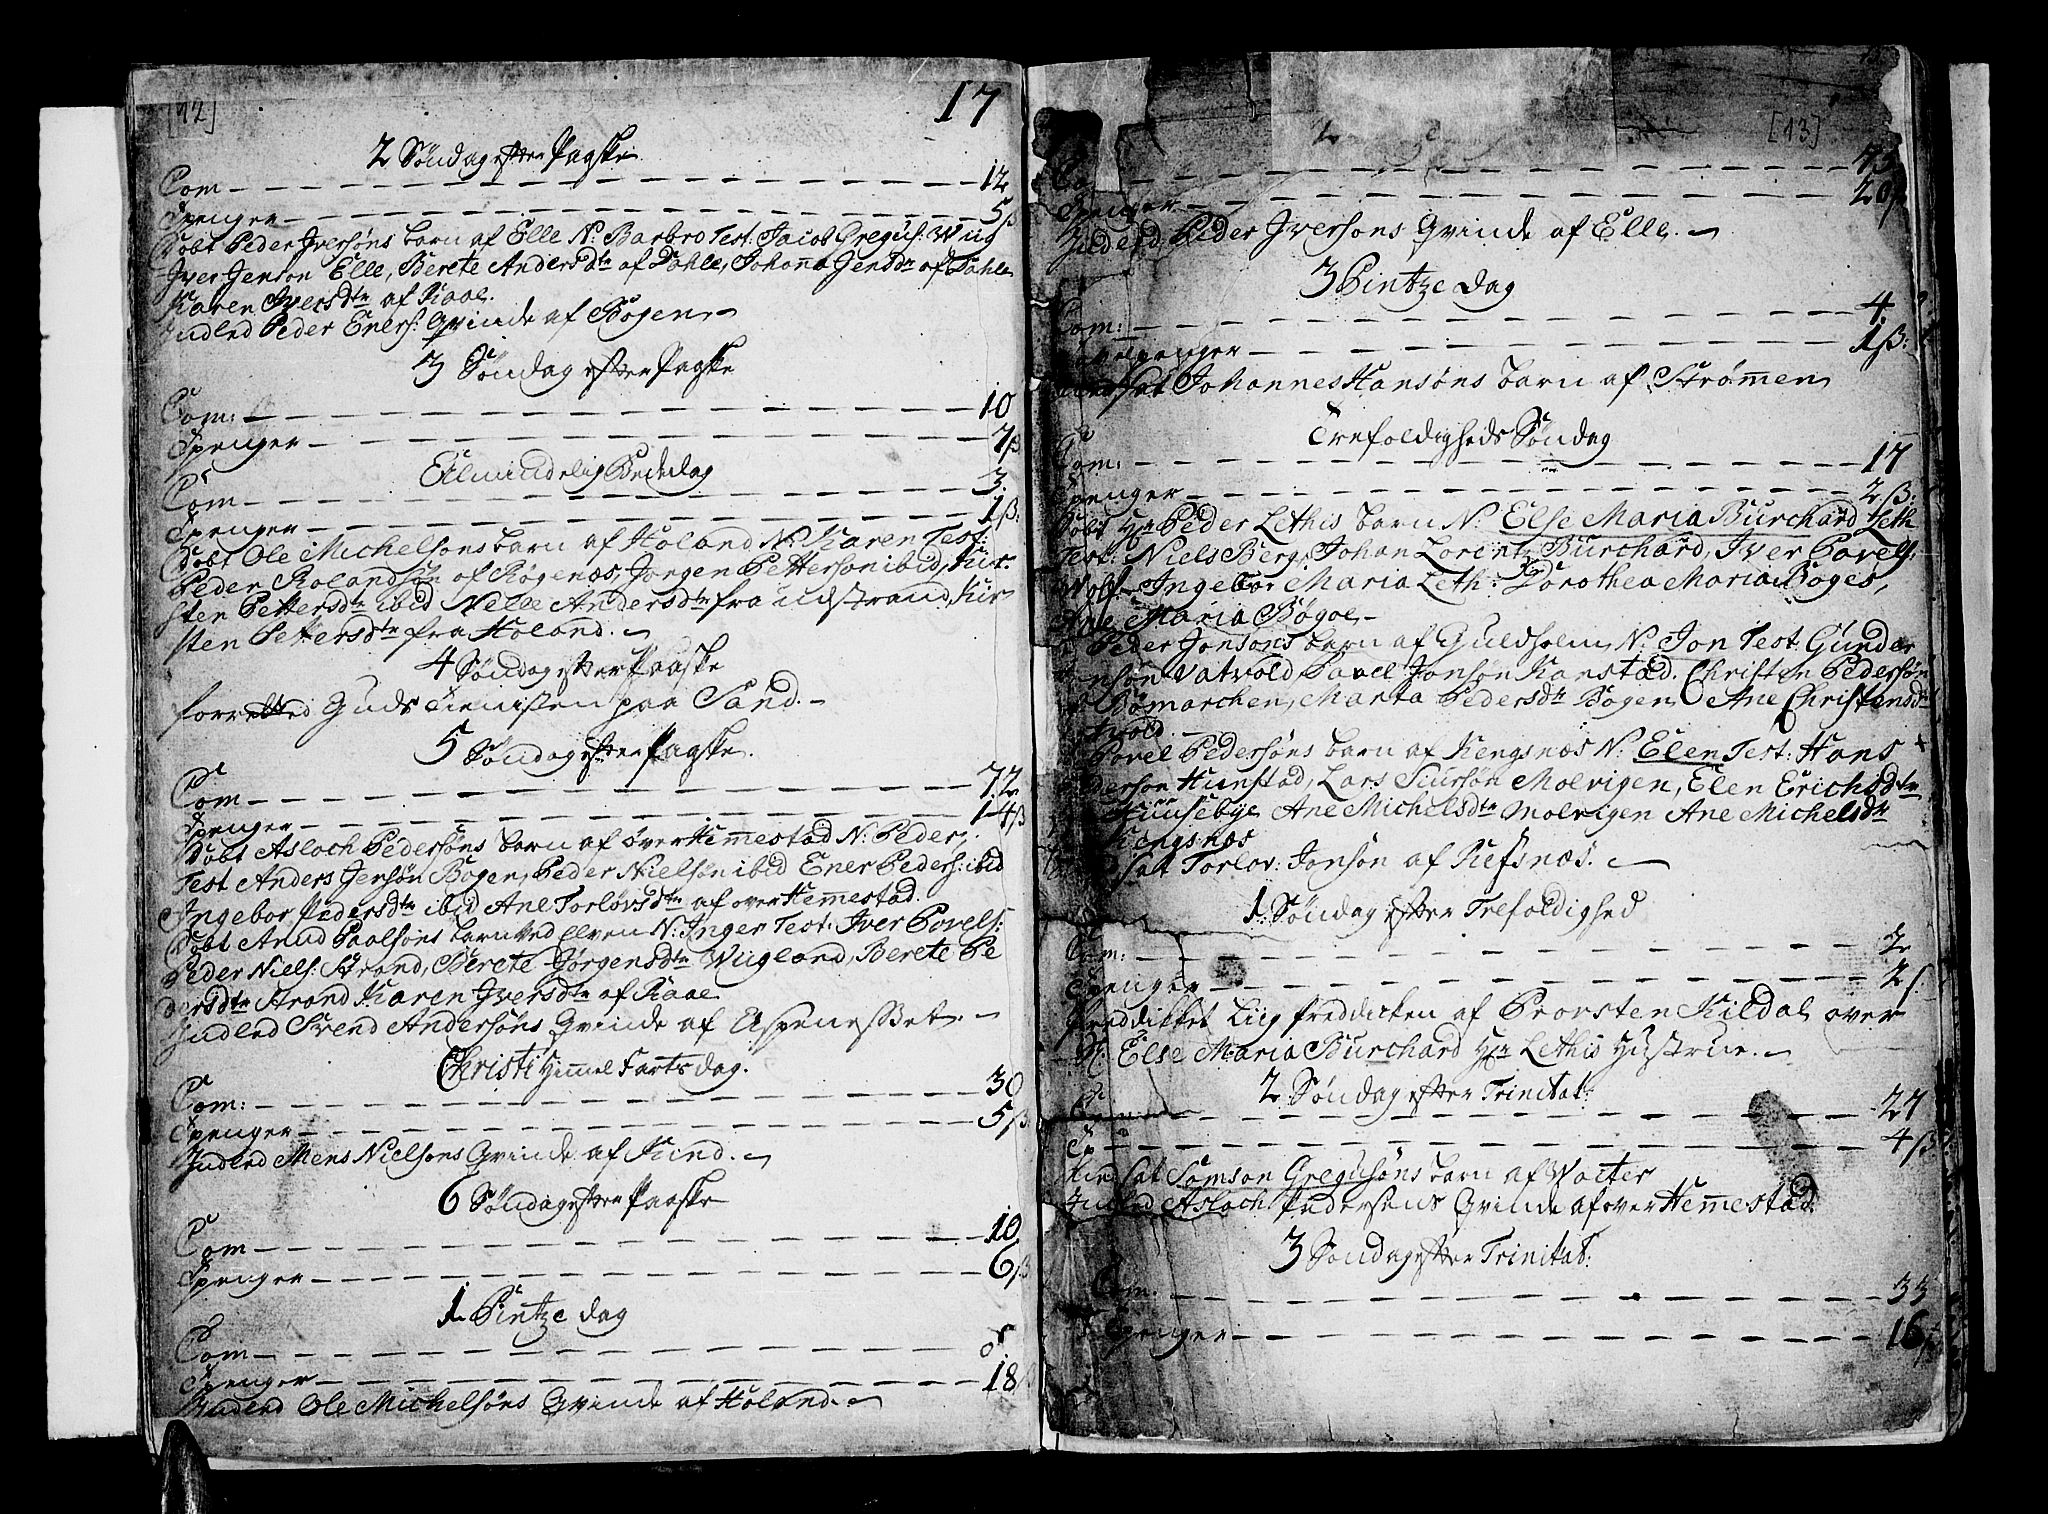 [12]
17
2 Søndag efter Paaske
Com 12
Tpenger 5 ß
Døbt Peder Iversøns barn af Elle N: Barbro Test: Jacob Gregus: Wiig
Iver Jensøn Elle, Berete Andersdtr af Dahle, Johanna Jensdtr af Dahle
Karen Iversdtr af Kaae.
Indled Peder Eners: Qvinde af Bogen
3 Søndag efter Paaske
Com: 10
Tpenger 7 ß
Allmindelig Bededag
Com 3
Tpenger 1 ß
Døbt Ole Michelsøns barn af Høland N: Karen Test:
Peder Rolandsøn af Røgenæs, Jørgen Pettersøn ibid, Kir
sten Pettersdtr ibid Nelle Andersdtr fra udstrand, Kir
sten Pettersdtr fra Høland.
4 Søndag efter Paaske
forretted Guds tienisten paa Sand.
5 Søndag efter Paaske.
Com 72
Tpenger 14 ß
Døbt Asloch Pedersøns barn af øver Hemmestad N: Peder,
Test Anders Jensøn Bogen, Peder Nielsøn ibid Ener Peders: ibid
Ingebor Pedersdtr ibid Ane Torløvsdtr af over Hemmestad.
Døbt Arnd Paalsøns barn ved Elven N: Inger Test: Iver Povels:
Peder Niels: Strand, Berete Jørgensdtr Wiigland, Berete Pe
dersdtr Strand Karen Iversdtr af Kaae
Indled Svend Andersøns Qvinde af Espenesset.
Christi Himmel Farts dag.
Com: 30
Tpenger 5 ß
Indled Mens Nielsøns Qvinde af Kind.
6 Søndag efter Paaske
Com 10
Tpenger 6 ß
1 Pintze dag
Com
Tpenger 18
Indled Ole Michelsøns Qvinde af Høland.
[13]
Tpenger 20 ß
Indled Peder Iversøns Qvinde af Elle.
3 Pintze dag
Com: 4
1 ß:
Johannes Hansøns barn af Strømmen
Trefoldigheds Søndag
Com: 17
Tpenger 2 ß:
Døbt Hr Peder Lethis barn N: Else Maria Burchard Leth
Test: Niels Berg, Johan Lorentz Burchard, Iver Povels:
Wolf Ingebor Maria Leth: Dorothea Maria Bøges,
Ane Maria Bøgoe
Peder Jonsøns barn af Guldholm N: Jon Test: Gunder
Jonsøn Vatvold Pavel Jonsøn Kanstad. Christen Pedersøn
Bømarchen, Marta Pedersdtr Bogen Ane Christensdtr
Povel Pedersøns barn af Kengsnæs N: Elen Test: Hans
Pedersøn Hunstad, Lars Siursøn Molvigen, Elen Erichsdtr
Huusebye Ane Michelsdtr Molvigen Ane Michelsdtr
Kengsnæs
Torlov: Jonsøn af Refsnæs.
1 Søndag efter Trefoldighed
Com: 2
Tpenger 2 ß
Preddikket Liig preddicken af Provsten Kildal over
Sl: Else Maria Burchard Hr Lethis Hustrue.
2 Søndag efter Trinitat:
27
4 ß
Samson Gregusøns barn af Wolter
Indled Asloch Pedersens Qvinde af over Hemmestad
3 Søndag efter Trinitat:
Com. 33
Tpenger 16 ß